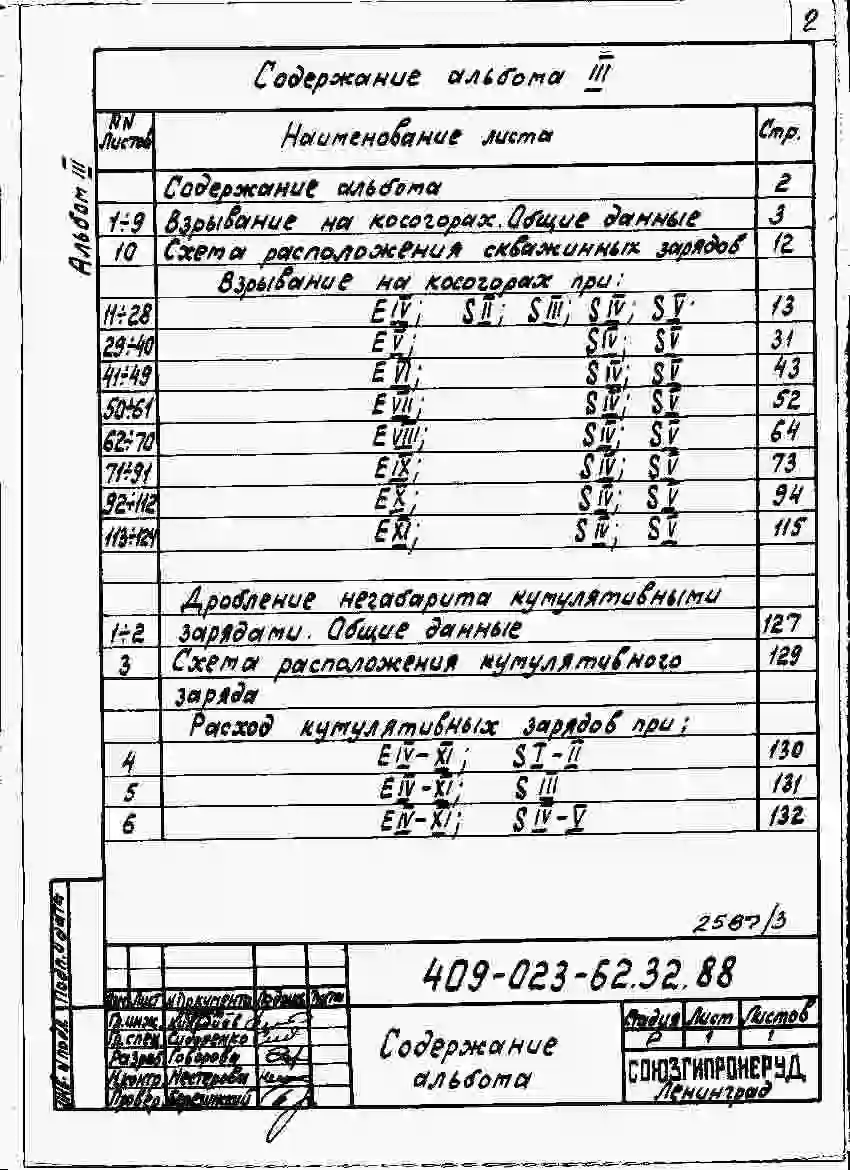 2
Содержание альбома III
Альбом III
NN Листов Наименование листа Стр.
Содержание альбома 2
1÷9 Взрывание на косогорах. Общие данные 3
10 Схема расположения скважинных зарядов 12
Взрывание на косогорах при:
11÷28 E IV; S II; S III; S IV; S V 13
29÷40 E V; S IV; S V 31
41÷49 E VI; S IV; S V 43
50÷61 E VII; S IV; S V 52
62÷70 E VIII; S IV; S V 64
71÷91 E IX; S IV; S V 73
92÷112 E X; S IV; S V 94
113÷124 E XI; S IV; S V 115
Дробление негабарита кумулятивными
1÷2 зарядами. Общие данные 127
3 Схема расположения кумулятивного 129
заряда
Расход кумулятивных зарядов при:
4 E IV-XI; S I-II 130
5 E IV-XI; S III 131
6 E IV-XI; S IV-V 132
2587/3
409-023-62.32.88
Изм. Лист №Документа Подпись Дата
Гр.инж.
Гр.спец. Сидоренко
Разраб. Говорова
Н.контр. Нестерова
Провер.
Содержание
альбома
Стадия Лист Листов
Р 1 1
СОЮЗГИПРОНЕРУД
Ленинград
Инв. № подл. Подп. и дата